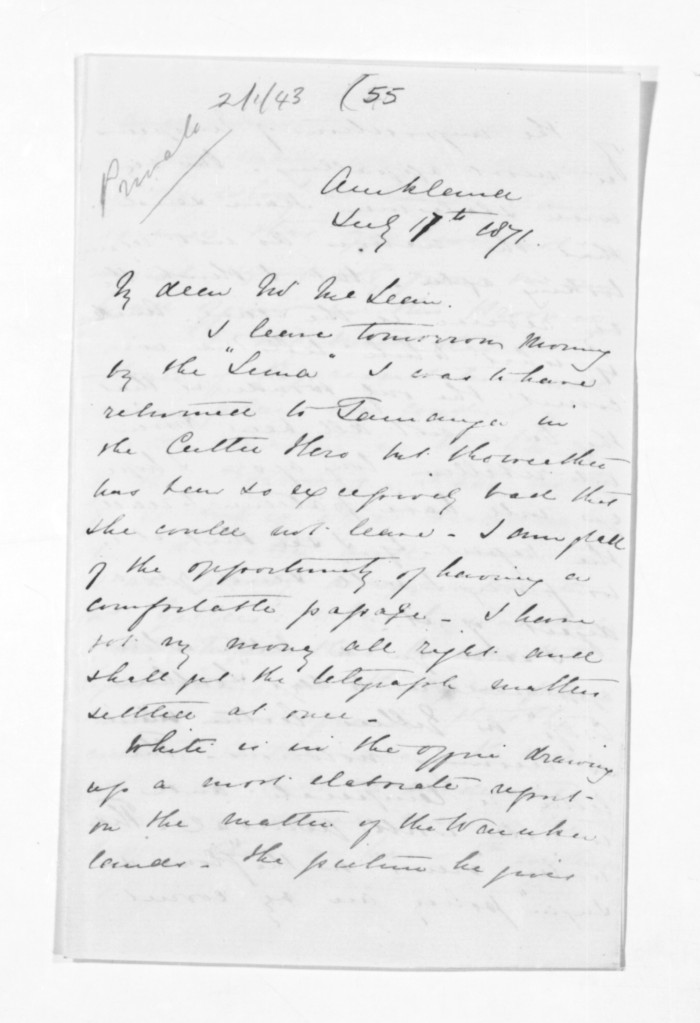 2/1/43 (55
Private
Auckland
July 17th 1871.
My dear Mr McLean.
I leave tomorrow morning
by the "Luna" I was to have
returned to Tauranga in
the Cutter Hero but the weather
has been so excessively bad that
she could not leave - I am glad
of the opportunity of having a
comfortable passage - I have
got my money all right and
shall get the telegraph matters
settled at once -
White is in the office drawing
up a most elaborate report
on the matter of the
lands - The picture he gives